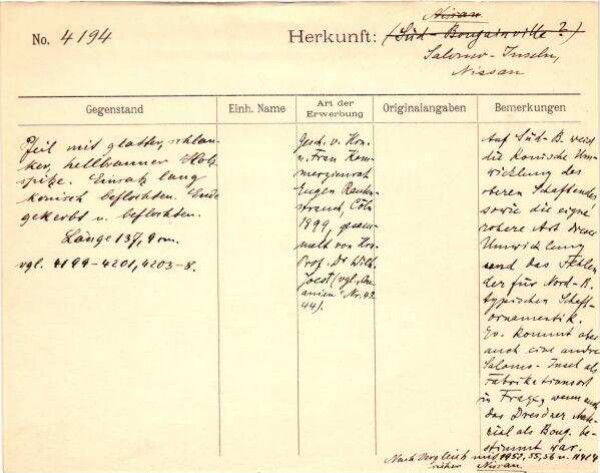 No. 4194
Herkunft:
Nissan
(Süd-Bougainville?)
Salomo-Inseln,
Nissan
Gegenstand
Einh. Name
Art der
Erwerbung
Originalangaben
Bemerkungen
Pfeil mit glatter, schlan-
ker, hellbrauner Holz-
spitze. Einsatz lang
konisch beflochten. Ende
gekerbt u. beflochten.
Länge 137,9 cm.
vgl. 4199-4201, 4203-8.
Gesch. v. Hrn.
u. Frau Kom-
merzienrat
Eugen Rauten-
strauch, Cöln
1899, gesam-
melt von Hrn.
Prof. Dr Wilh.
Joest (vgl.
Nr. 42
44).
Auf Süd-B. weist
die konische Um-
wicklung des
oberen Schaftendes
sowie die
rohere Art dieser
Umwicklung
und das Fehlen
der für Nord-B.
typischen Schaft-
ornamentik.
Ev. kommt aber
auch eine andre
Salomo-Insel als
Fabrikationsort
in Frage, wenn auch
das Dresdner Mate-
rial als Boug. be-
stimmt war.
Nach Vergleich mit 4952, 55, 56 u. 11414
sicher Nissan